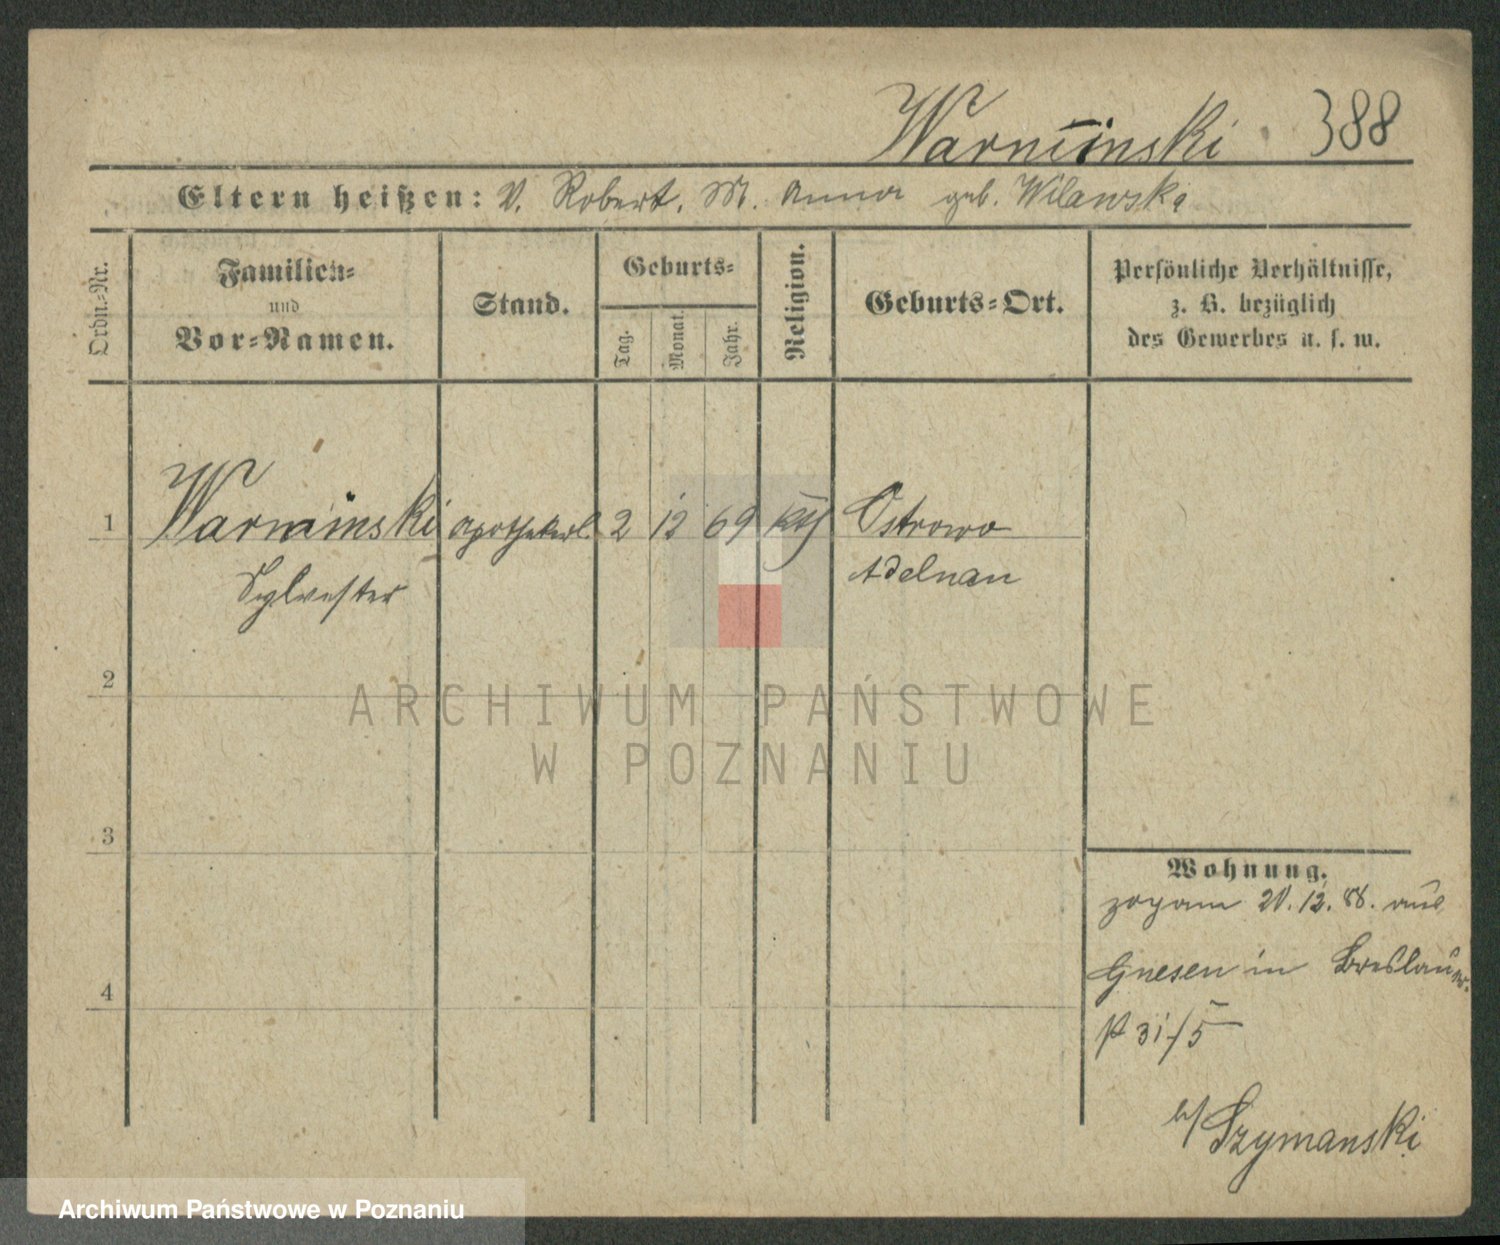 Warminski 388
Eltern heißen: V. Robert. M. Anna geb. Wilawska
Ordn.-Nr.
Familien-
und
Vor-Namen.
Stand.
Geburts-
Tag.
Monat.
Jahr.
Religion.
Geburts-Ort.
Persönliche Verhältnisse,
z. B. bezüglich
des Gewerbes u. s. w.
1 Warminski 2 12 69 kth Ostrowo
Sylvester Adelnau
2
ARCHIWUM PAŃSTWOWE
W POZNANIU
3
Wohnung.
zog am 12. 88. aus
Gnesen in Breslauer-
4
31/5
b/ Szymanski
Archiwum Państwowe w Poznaniu